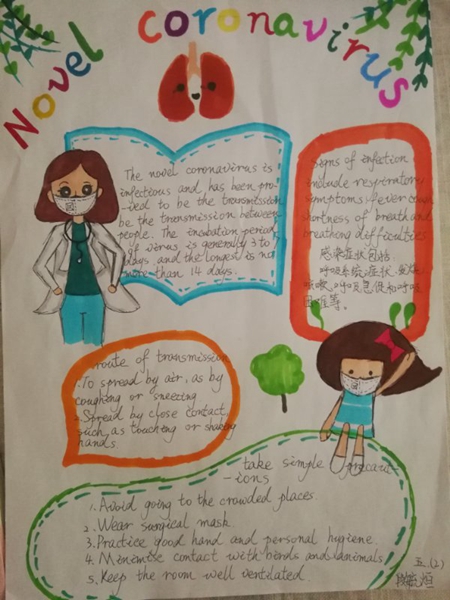 Novel coronavirus
The novel coronavirus is
infectious and has been pro-
ved to be the transmission
be the transmission between
people. The incubation period
of virus is generally 3 to 7
days and the longest is no
more than 14 days.
Signs of infection
include respiratory
symptoms fever
shortness of breath and
breathing difficulties
感染症状包括
呼吸系统症状、发烧
咳嗽、呼吸急促和呼吸
困难等。
route of transmission
1.To spread by air, as by
coughing or sneezing
2.Spread by close contact,
such as touching or shaking
hands
take simple precaut-
-ions
1. Avoid going to the crowded places
2. Wear surgical mask
3.Practice good hand and personal hygiene
4. Minimise contact with birds and animals
5. Keep the room well ventilated
五.(2)